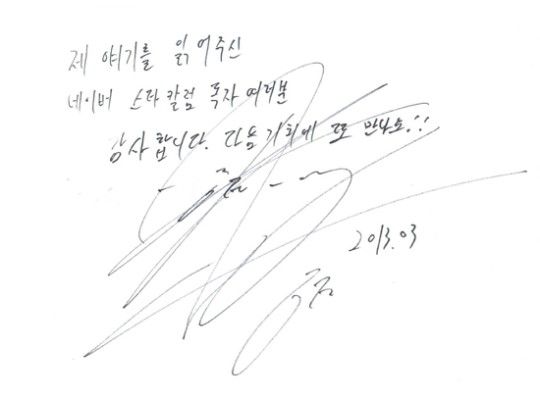 제 얘기를 읽어주신
네이버 스타칼럼 독자 여러분
감사합니다. 다음기회에 또 만나요!!
2013.03